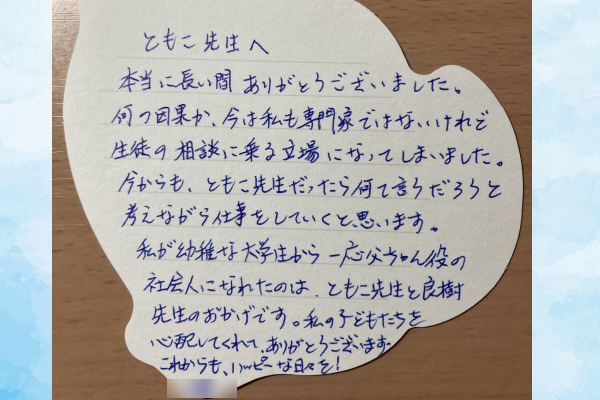 ともこ先生へ
本当に長い間ありがとうございました。
何の因果か、今は私も専門家ではないけれど
生徒の相談に乗る立場になってしまいました。
今からも、ともこ先生だったら何て言うだろうと
考えながら仕事をしていくと思います。
私が幼稚な大学生から一応父ちゃん役の
社会人になれたのは、ともこ先生と良樹
先生のおかげです。私の子どもたちを
心配してくれて、ありがとうございます。
これからも、ハッピーな日々を!